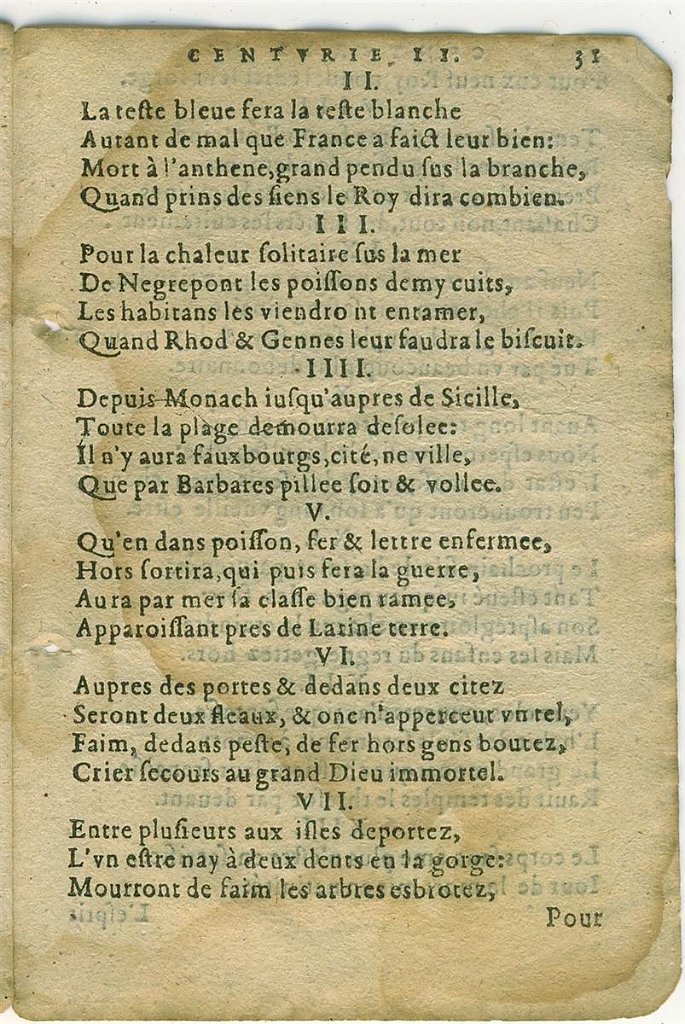 CENTVRIE II. 31
II.
La teſte bleue fera la teſte blanche
Autant de mal que France a faict leur bien:
Mort à l'anthene,grand pendu ſus la branche,
Quand prins des ſiens le Roy dira combien.
III.
Pour la chaleur ſolitaire ſus la mer
De Negrepont les poiſſons demy cuits,
Les habitans les viendront entamer,
Quand Rhod & Gennes leur faudra le biſcuit.
IIII.
Depuis Monach iuſqu'aupres de Sicille,
Toute la plage demourra deſolee:
Il n'y aura fauxbourgs,cité,ne ville,
Que par Barbares pillee ſoit & vollee.
V.
Qu'en dans poiſſon, fer & lettre enfermee,
Hors ſortira,qui puis fera la guerre,
Aura par mer ſa claſſe bien ramee,
Apparoiſſant pres de Latine terre.
VI.
Aupres des portes & dedans deux citez
Seront deux fleaux, & onc n'apperceut vn tel,
Faim, dedans peſte, de fer hors gens boutez,
Crier ſecours au grand Dieu immortel.
VII.
Entre pluſieurs aux iſles deportez,
L'vn eſtre nay à deux dents en la gorge:
Mourront de faim les arbres esbrotez,
Pour